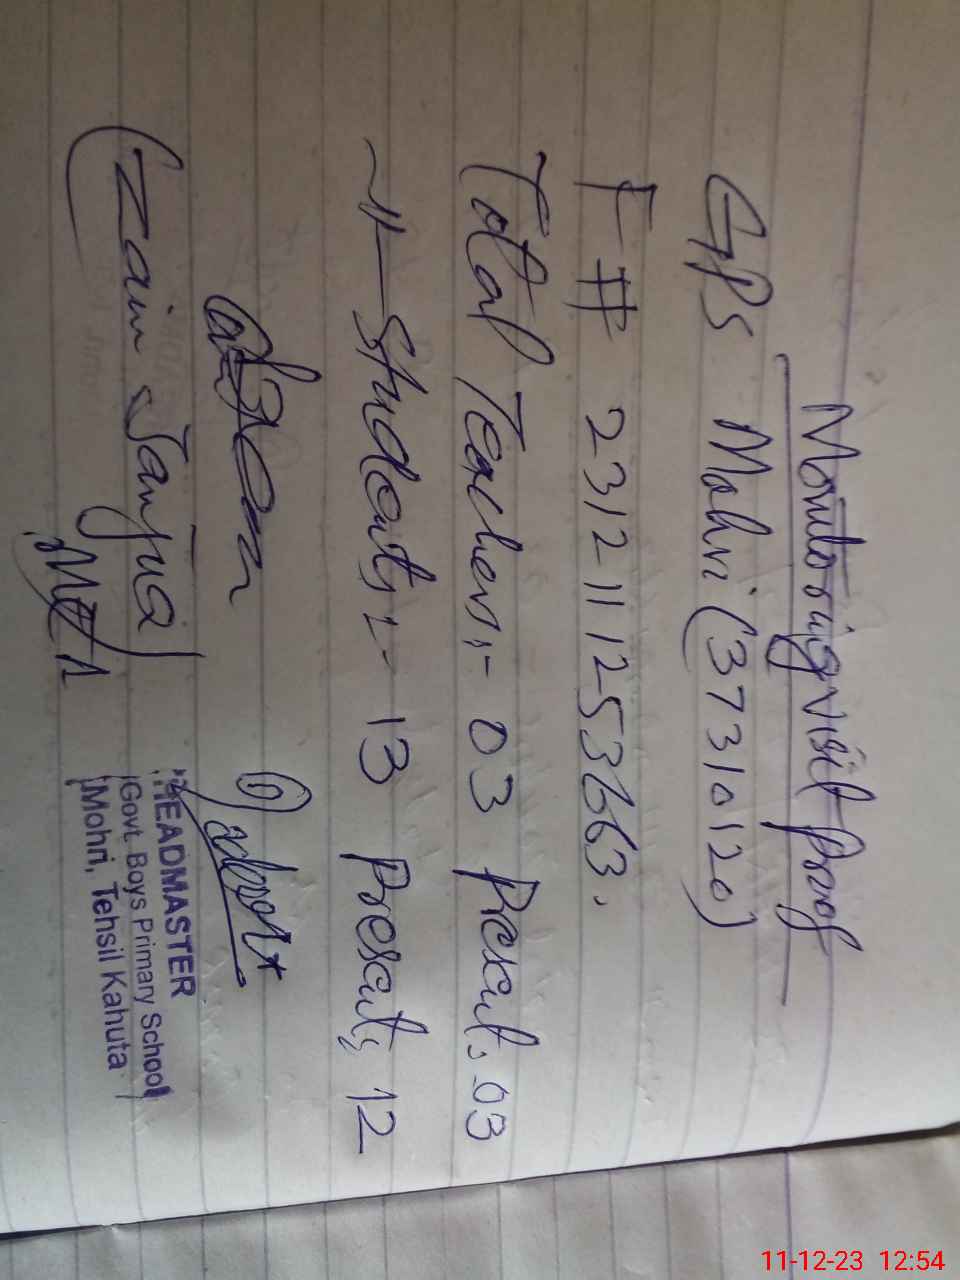 Monitoring visit Proof
GPS Mohri (37310120)
F # 2312111253663.
Total Teachers:- 03 Present:03
-11- Students:- 13 Present:12
(Zain Janjua)
HEADMASTER
Govt. Boys Primary School
Mohri, Tehsil Kahuta
11-12-23 12:54